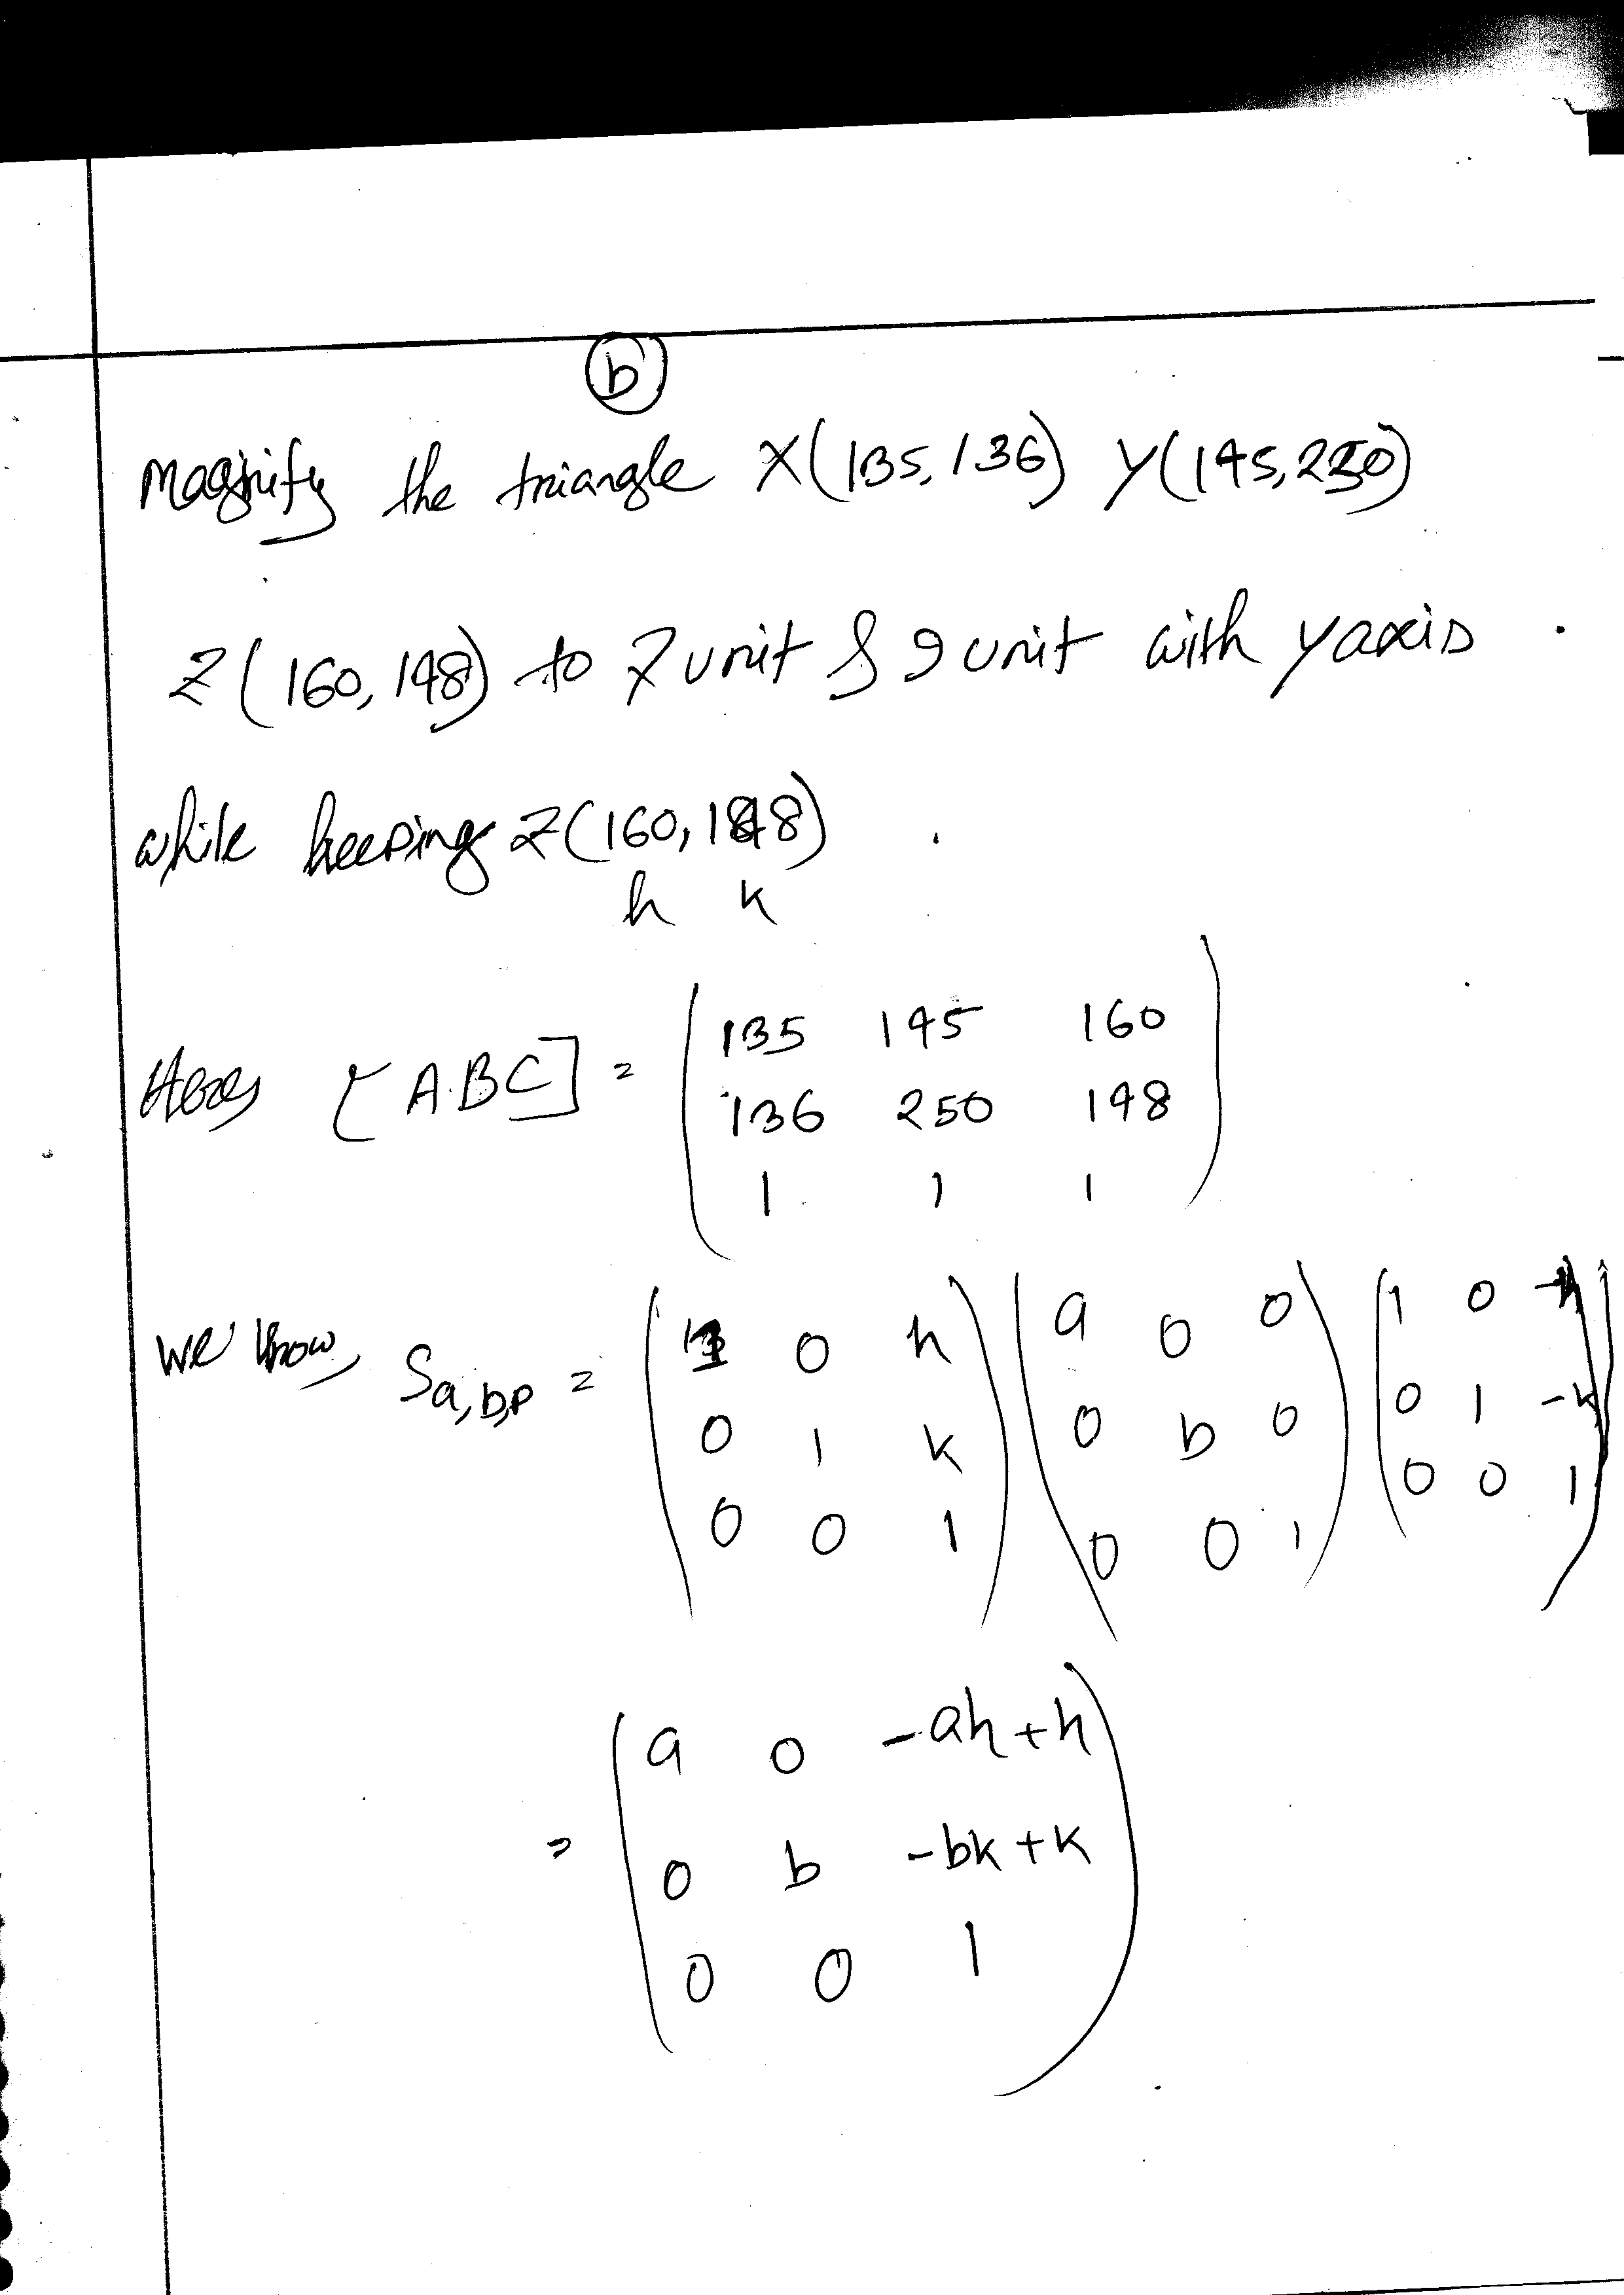 b
Magnify the triangle X(135,136) Y(145,250)
Z(160,148) to 7 unit & 9 unit with y axis
while keeping Z(160,148)
h k
[ABC] = (135 145 160
136 250 148
1 1 1)
we know, Sa,b,P = (1 0 h) (a 0 0) (1 0 -h)
(0 1 k) (0 b 0) (0 1 -k)
(0 0 1) (0 0 1) (0 0 1)
= (a 0 -ah+h
0 b -bk+k
0 0 1)